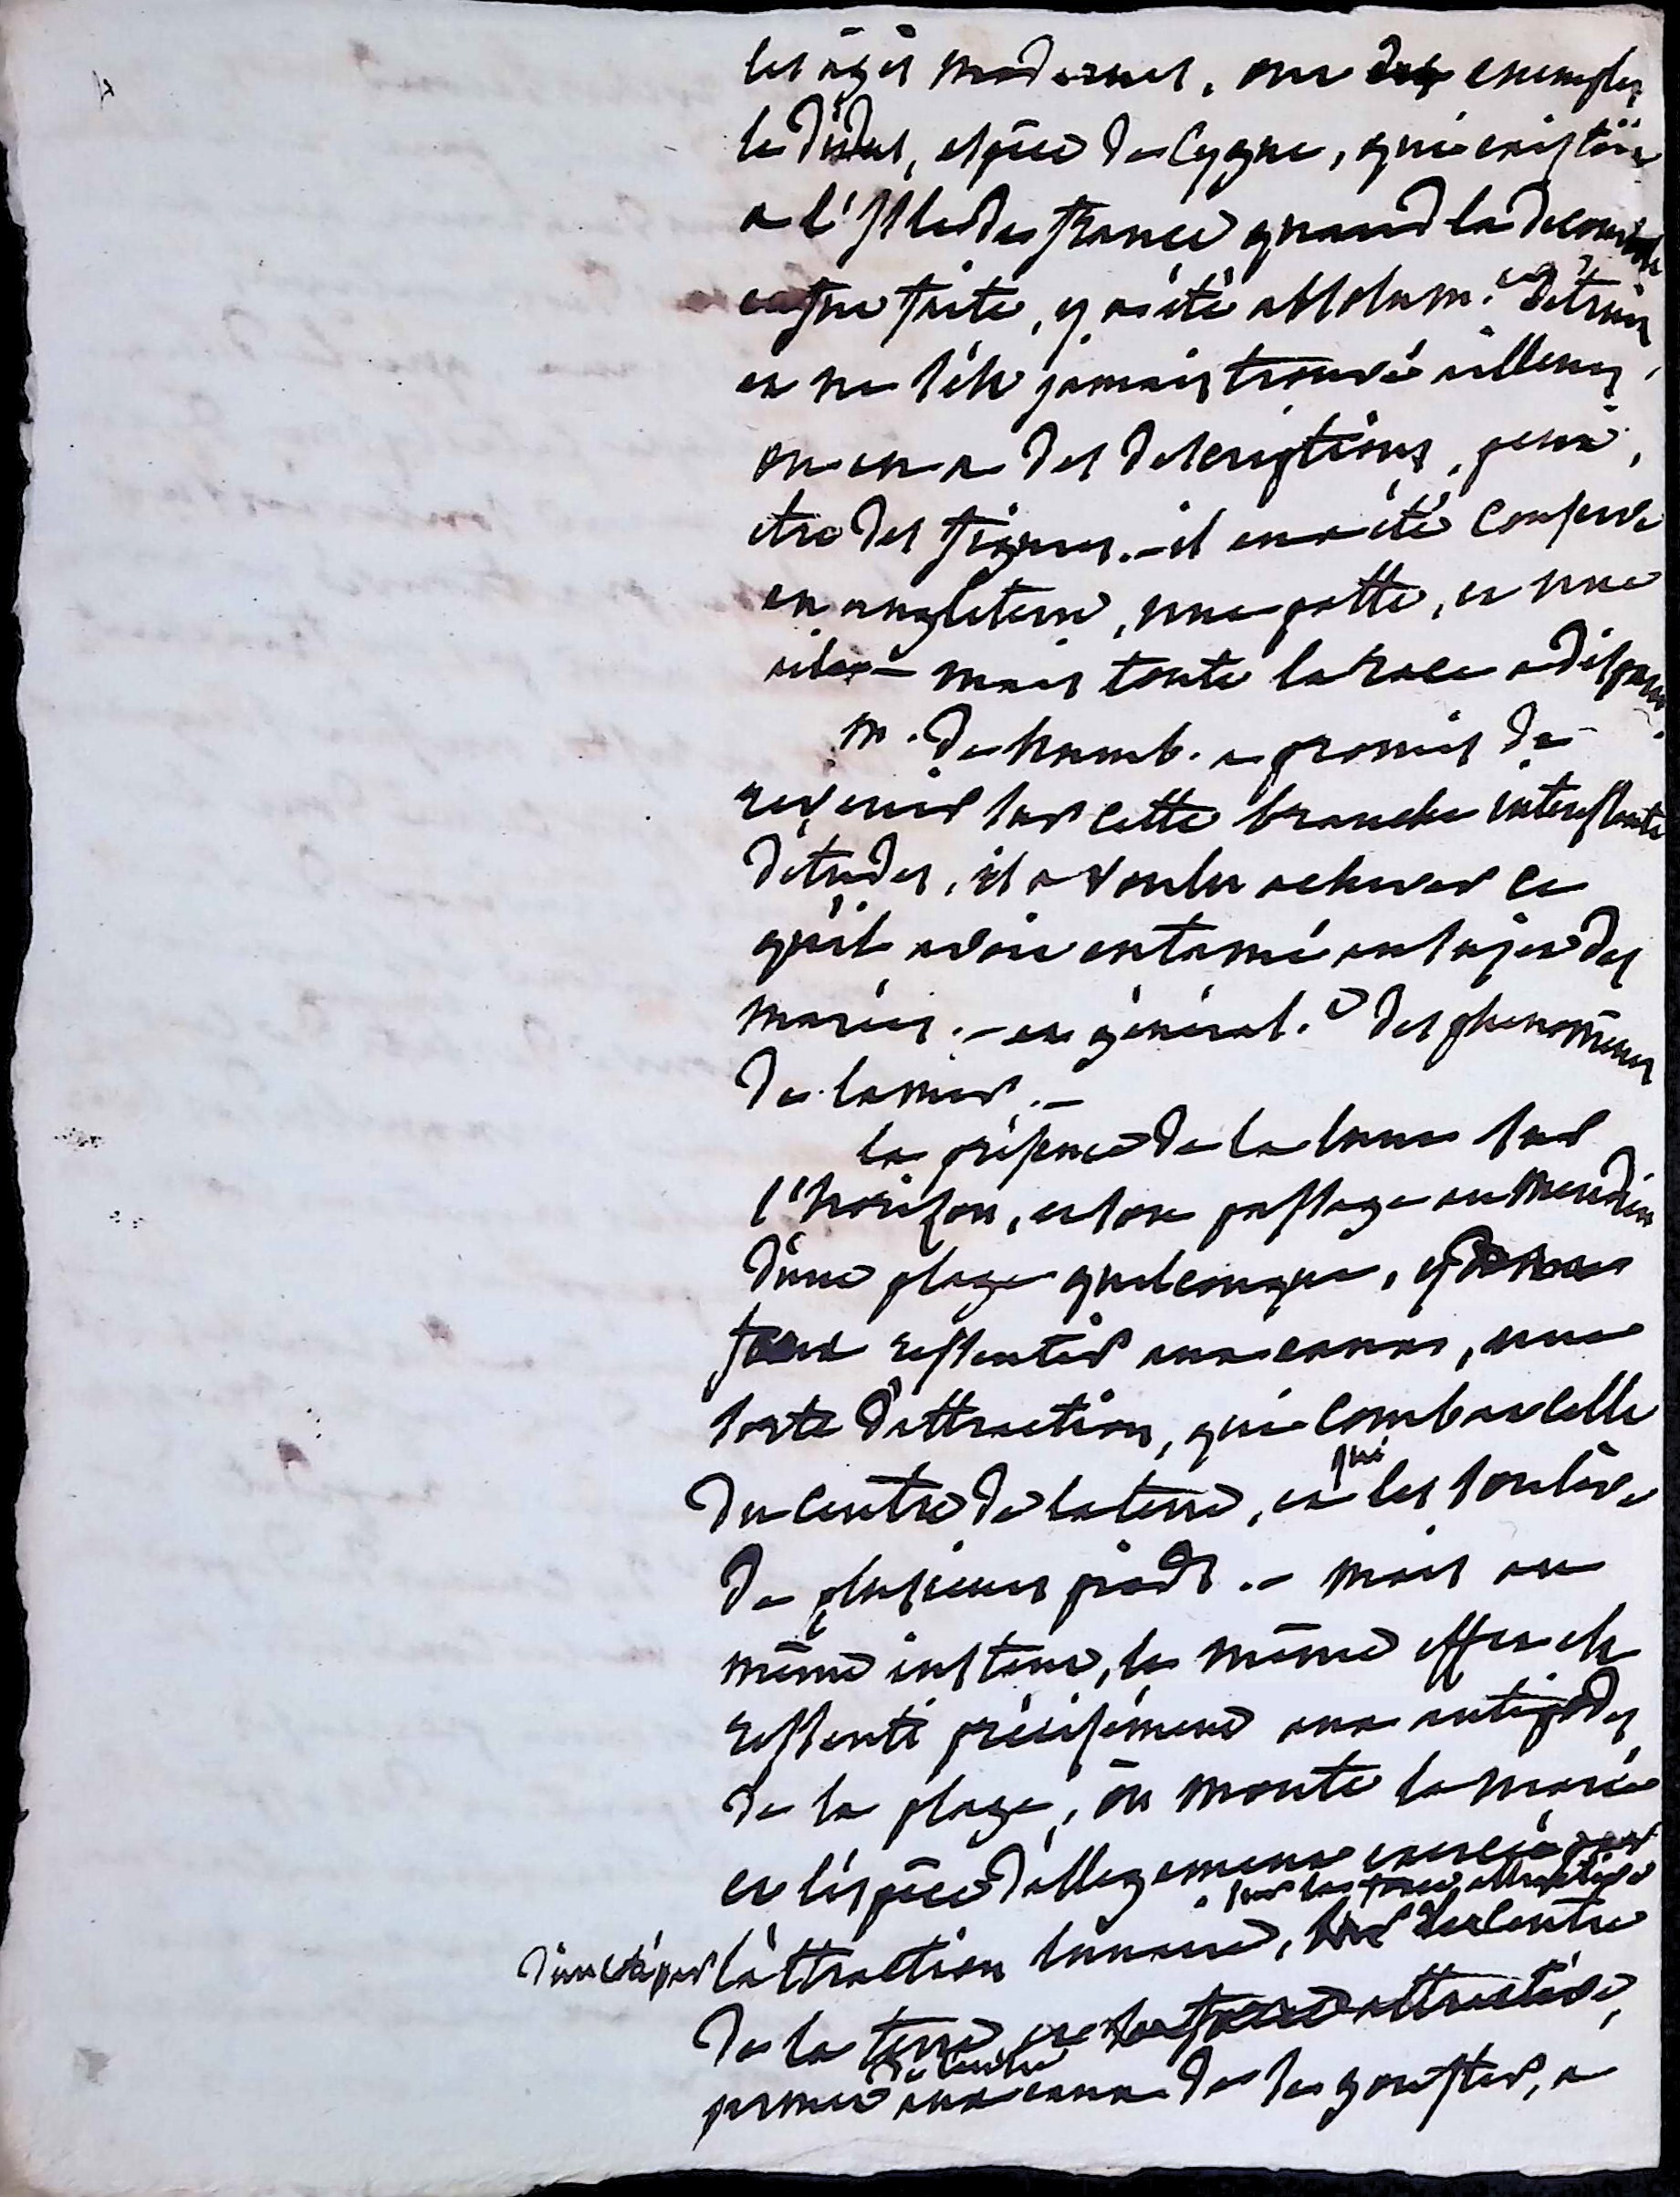 les ages modernes. on a des exemples
le Didus, espèce de Cygne, qui existoit
a l'Isle de france quand la decouverte
en fut faite, y a été absolum.t détruit
et ne s'est jamais trouvé ailleurs,
on en a des descriptions, peut,
etre des figures. - il en a été conservé
en angleterre, une patte, et une
aile - mais toute la race a disparu.
M. de humb. a promis de
revenir sur cette branche interessante
d'etudes, il a voulu achever ce
qu'il avoit entamé au sujet des
marées. - en général.t des phenomenes
de la mer. -
la présence de la lune sur
l'horison, et son passage au meridien
d'une plage quelconque,
font ressentir aux eaux, une
sorte d'attraction, qui combat celle
du centre de la terre, et qui les soulève
de plusieurs pieds. - mais au
même instant, le même effet est
ressenti précisément aux antipodes
de la plage, où monte la marée
et l'espèce d'allegement exercé par
sur la force attractive
d'un côté par l'attraction lunaire, sur le centre
de la terre, et la force attractive,
du centre
permet aux eaux de se gonfler, a